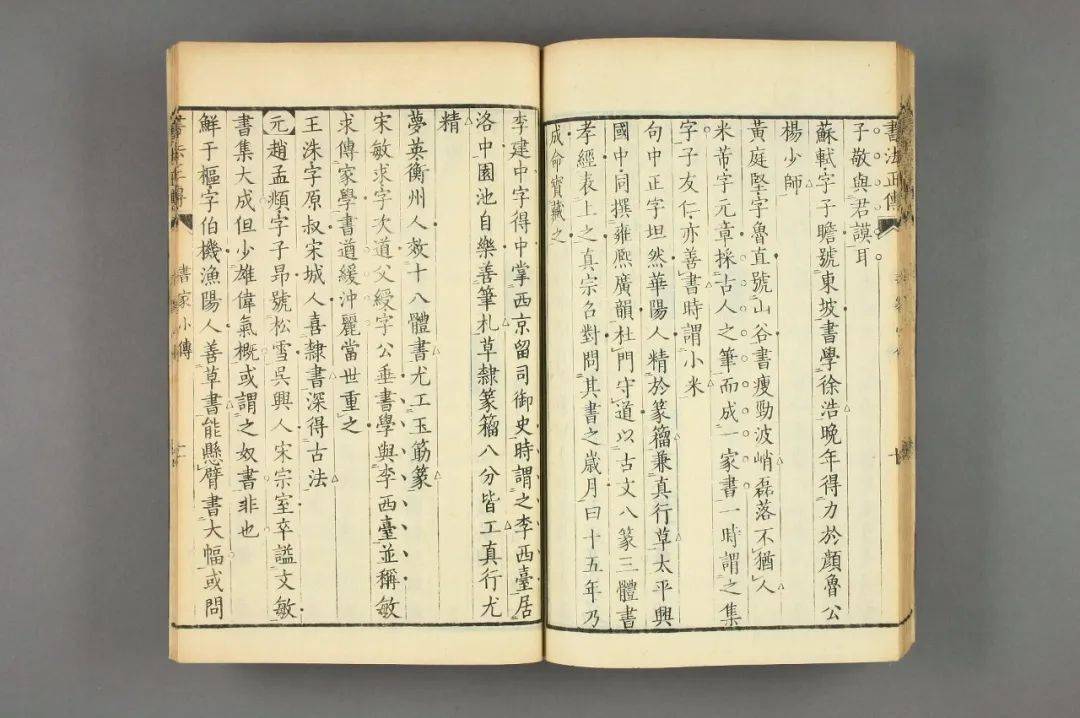 書法正傳
子敬與君謨耳
蘇軾字子瞻號東坡書學徐浩晚年得力於顏魯公
楊少師
黃庭堅字魯直號山谷書瘦勁波峭磊落不猶人
米芾字元章採古人之筆而成一家書一時謂之集
字子友仁亦善書時謂小米
句中正字坦然華陽人精於篆籀兼真行草太平興
國中同撰雍熙廣韻杜門守道以古文八篆三體書
孝經表上之真宗召對問其書之歲月曰十五年乃
成命寶藏之
李建中字得中掌西京留司御史時謂之李西臺居
洛中園池自樂善筆札草隸篆籀八分皆工真行尤
精
夢英衡州人效十八體書尤工玉筯篆
宋敏求字次道父綬字公垂書學與李西臺並稱敏
求傳家學書遒緩沖麗當世重之
王洙字原叔宋城人喜隸書深得古法
元趙孟頫字子昂號松雪吳興人宋宗室卒謚文敏
書集大成但少雄偉氣概或謂之奴書非也
鮮于樞字伯機漁陽人善草書能懸臂書大幅或問
書家小傳